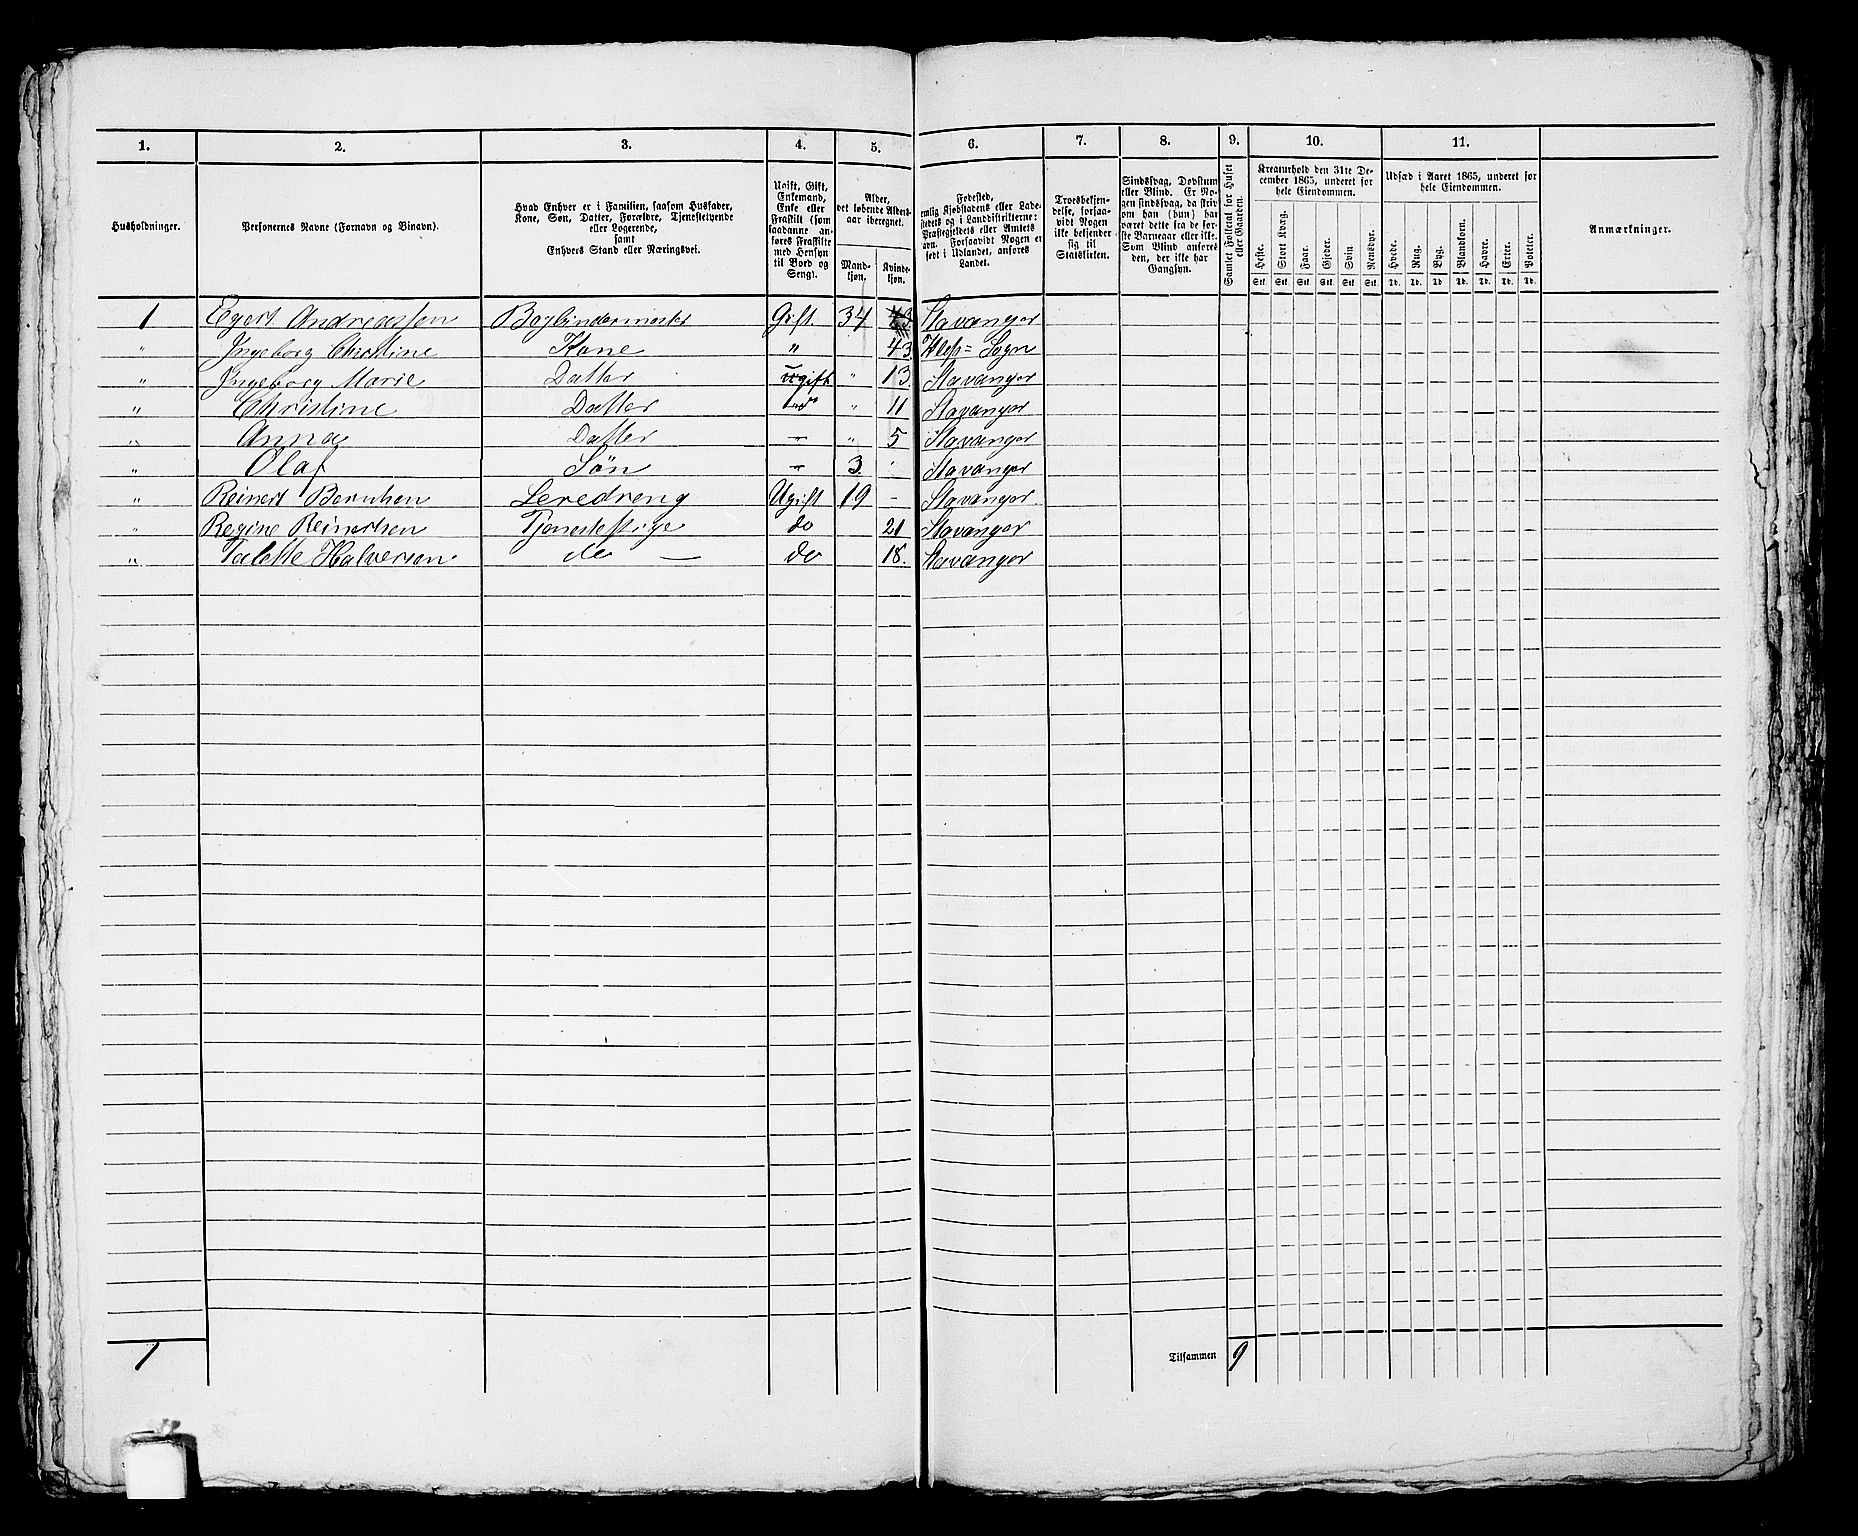 1. 2. 3. 4. 5. 6. 7. 8. 9. 10. 11.
Husholdninger.
Personernes Navne (Fornavn og Binavn).
Hvad Enhver er i Familien, saasom Husfader,
Kone, Søn, Datter, Forældre, Tjenestetyende
eller Logerende,
samt
Enhvers Stand eller Næringsvei.
Ugift, Gift,
Enkemand,
Enke eller
Fraskilt (som
saadanne an-
føres Fraskilte
med Hensyn
til Bord og
Seng).
Alder,
det løbende Alders-
aar iberegnet.
Mand-
kjøn.
Kvinde-
kjøn.
Fødested,
nemlig Kjøbstadens eller Lade-
stedets og i Landdistrikterne:
Præstegjeldets eller Amtets
Navn. Forsaavidt Nogen er
født i Udlandet, anføres
Landet.
Troesbekjen-
delse, forsaa-
vidt Nogen
ikke bekjender
sig til
Statskirken.
Sindssvag, Døvstum
eller Blind. Er No-
gen sindssvag, da skriv
om han (hun) har
været dette fra de før-
ste Barneaar eller ikke.
Som Blind anføres
den, der ikke har
Gangsyn.
Samlet Folketal for Huset
eller Gaarden.
Kreaturhold den 31te De-
cember 1865, underet for
hele Eiendommen.
Heste. Stort Kvæg. Faar. Gjeder. Svin Rensdyr.
Stk. Stk. Stk. Stk. Stk Stk.
Udsæd i Aaret 1865, underet for
hele Eiendommen.
Hvede. Rug. Byg. Blandkorn. Havre. Erter. Poteter.
Td. Td. Td Td. Td. Td. Td.
Anmærkninger.
1 Egert Andreassen Bogbindermester Gift. 34 Stavanger
" Ingeborg Christine Kone " 43 Sogn
" Ingeborg Marie Datter ugift " 13 Stavanger
" Christine Datter " 11 Stavanger
" Anna Datter " " 5 Stavanger
" Olaf Søn " 3. Stavanger
" Reinert Berntsen Leredreng Ugift 19 - Stavanger
" Regine Reinertsen Tjenestepige do 21 Stavanger
" Talette Halversen do — do 18. Stavanger
1 Tilsammen 9